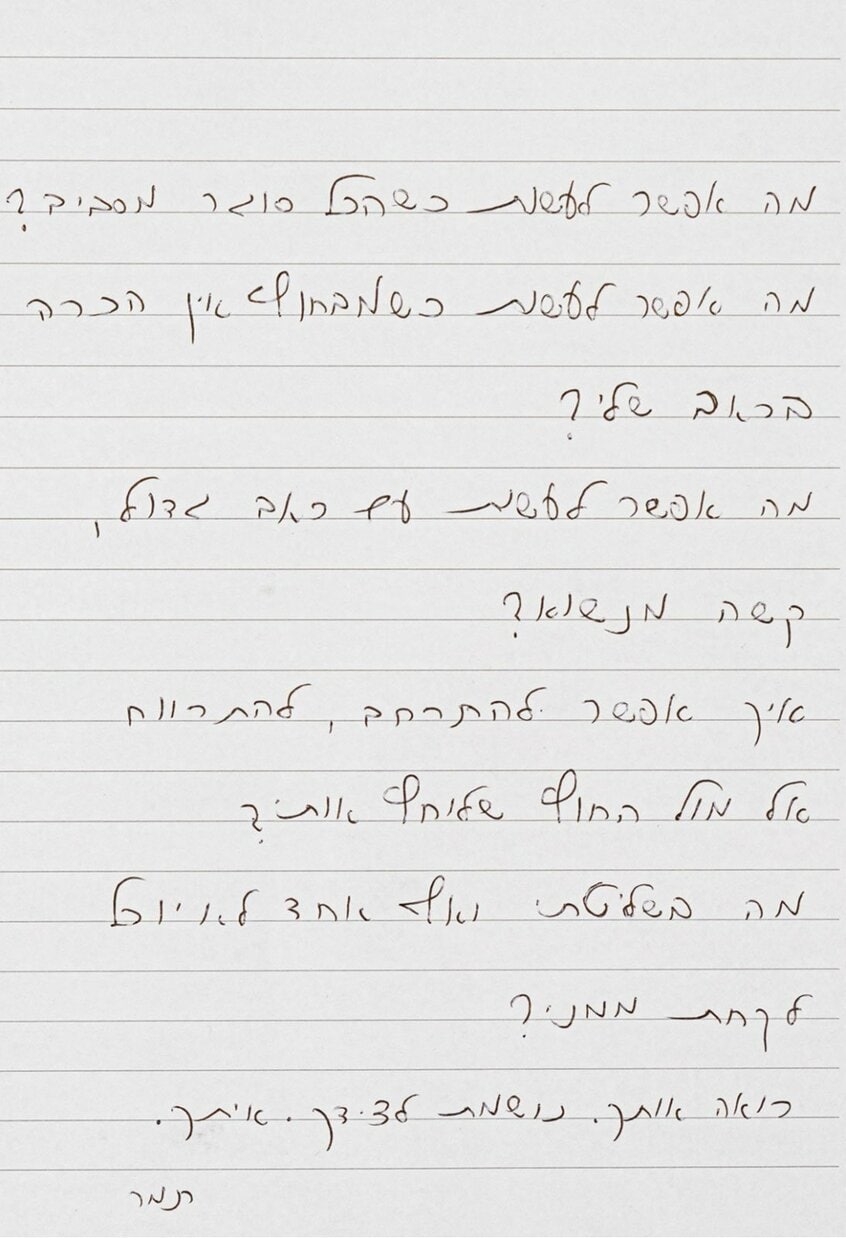 מה אפשר לעשות כשהכל סוגר מסביב?
מה אפשר לעשות כשמבחוץ אין הכרה
בכאב שלי?
מה אפשר לעשות עם כאב גדול,
קשה מנשוא?
איך אפשר להתרחב, להתרווח
אל מול החוץ שלוחץ אותי?
מה בשליטתי ואף אחד לא יוכל
לקחת ממני?
רואה אותך. נושמת לצידך. איתך.
תמר